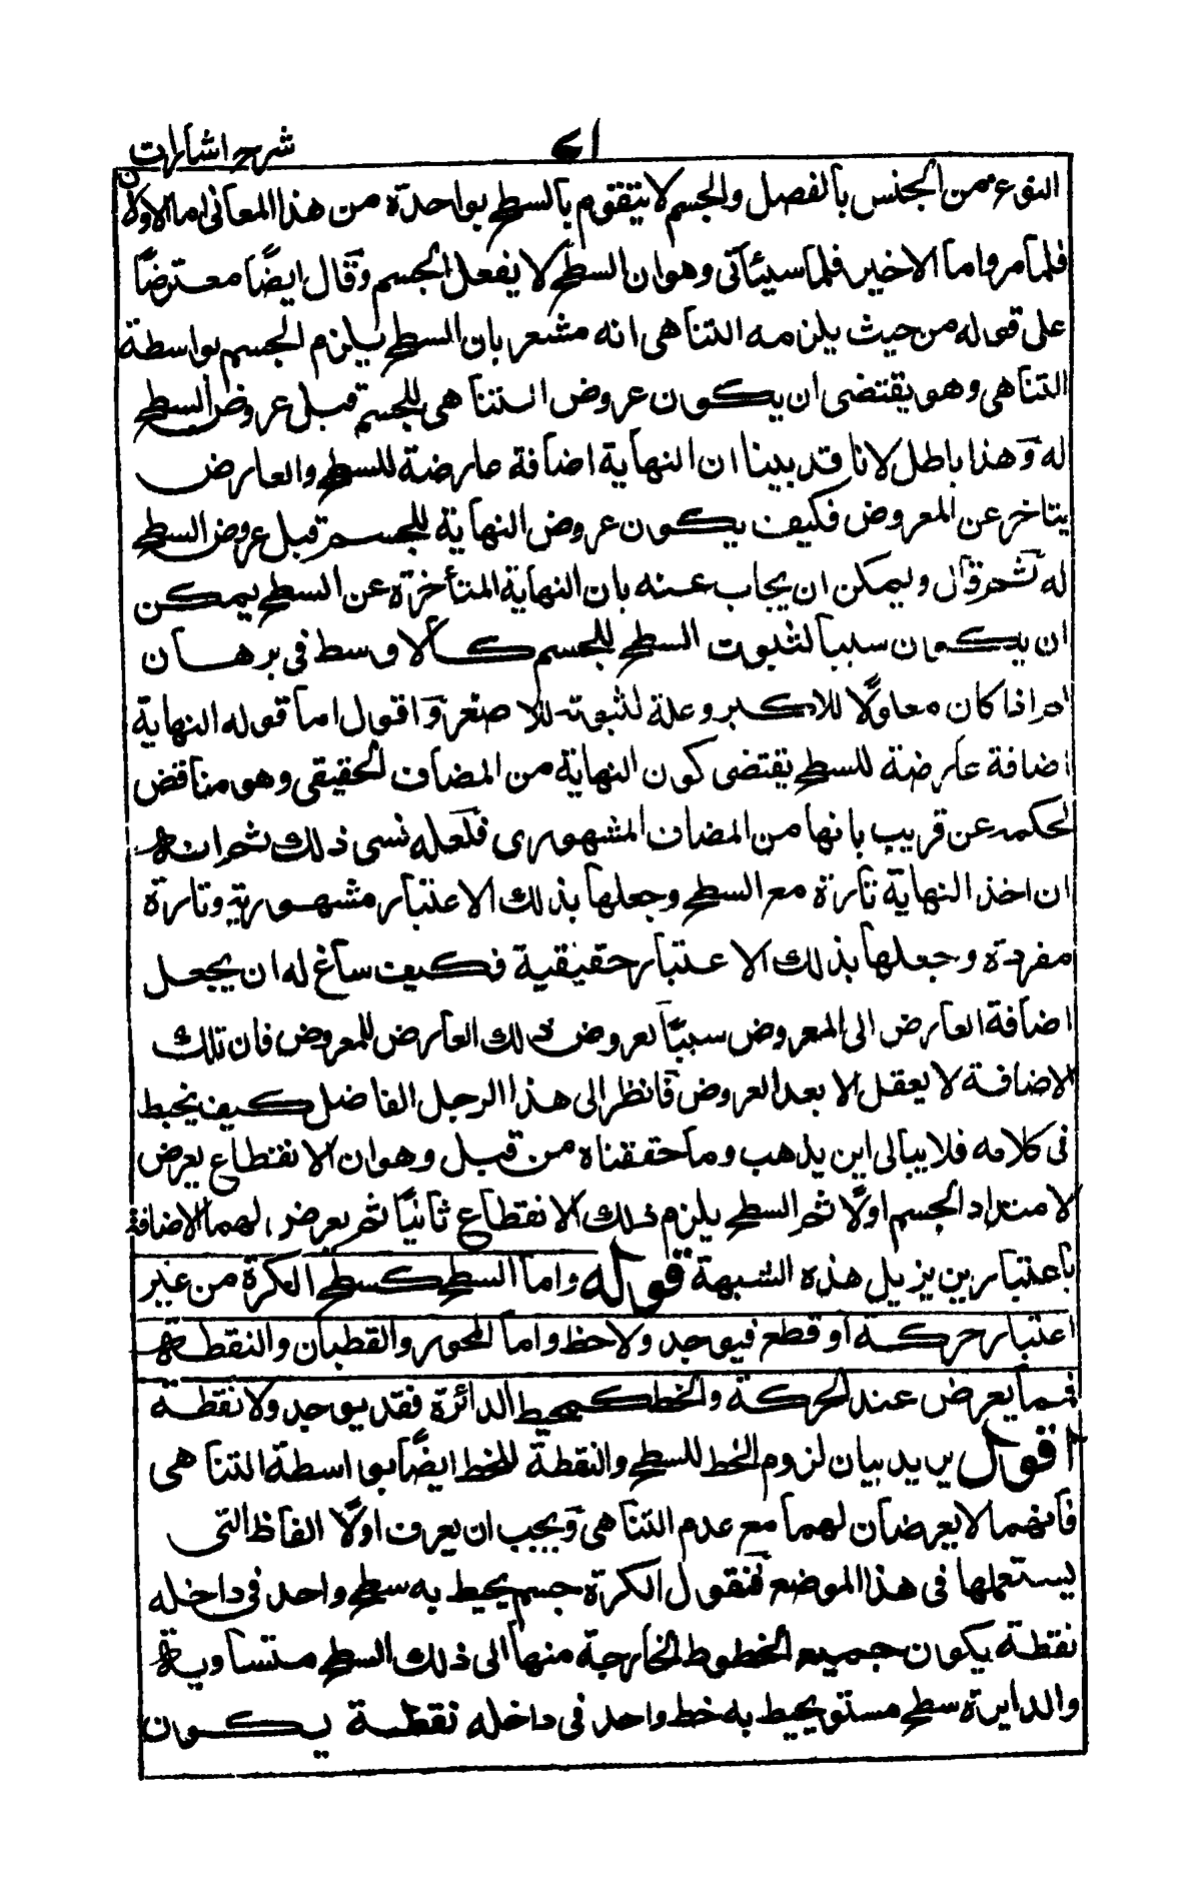 شرح اشارات
النوع من الجنس بالفصل والجسم لا يتقوم بالسطح بواحدة من هذا المعانى اما الاولان
فلما مر واما الاخير فلما سيأتى وهو ان السطح لا يفعل الجسم وقال ايضًا معترضًا
على قوله من حيث يلزمه التناهى انه مشعر بان السطح يلزم الجسم بواسطة
التناهى وهو يقتضى ان يكون عروض التناهى للجسم قبل عروض السطح
له وهذا باطل لانا قد بينا ان النهاية اضافة عارضة للسطح والعارض
يتاخر عن المعروض فكيف يكون عروض النهاية للجسم قبل عروض السطح
له ثم قال ويمكن ان يجاب عنه بان النهاية المتأخرة عن السطح يمكن
ان يكون سببا لثبوت السطح للجسم كالاوسط فى برهان
ان اذا كان معلولًا للاكبر وعلة لثبوته للاصغر واقول اما قوله النهاية
اضافة عارضة للسطح يقتضى كون النهاية من المضاف الحقيقى وهو مناقض
لحكمه عن قريب بانها من المضاف المشهورى فلعله نسى ذلك ثم انه
ان اخذ النهاية تارة مع السطح وجعلها بذلك الاعتبار مشهورية وتارة
مفردة وجعلها بذلك الاعتبار حقيقية فكيف ساغ له ان يجعل
اضافة العارض الى المعروض سببًا لعروض ذلك العارض للمعروض فان تلك
الاضافة لا يعقل الا بعد العروض فانظر الى هذا الرجل الفاضل كيف يخبط
فى كلامه فلا يبالى اين يذهب وما حققناه من قبل وهو ان الانقطاع يعرض
لامتداد الجسم اولًا ثم السطح يلزم ذلك الانقطاع ثانيًا ثم يعرض لهما الاضافة
باعتبارين يزيل هذه الشبهة قوله واما السطح كسطح الكرة من غير
اعتبار حركة او قطع فيوجد ولا خط واما المحور والقطبان والنقطة
فمما يعرض عند الحركة والخط كمحيط الدائرة فقد يوجد ولا نقطة
اقول يريد بيان لزوم الخط للسطح والنقطة للخط ايضًا بواسطة التناهى
فانهما لا يعرضان لهما مع عدم التناهى ويجب ان يعرف اولًا الفاظ التى
يستعملها فى هذا الموضع فنقول الكرة جسم يحيط به سطح واحد فى داخله
نقطة يكون جميع الخطوط الخارجة منها الى ذلك السطح متساوية
والدايرة سطح مستو يحيط به خط واحد فى داخله نقطة يكون